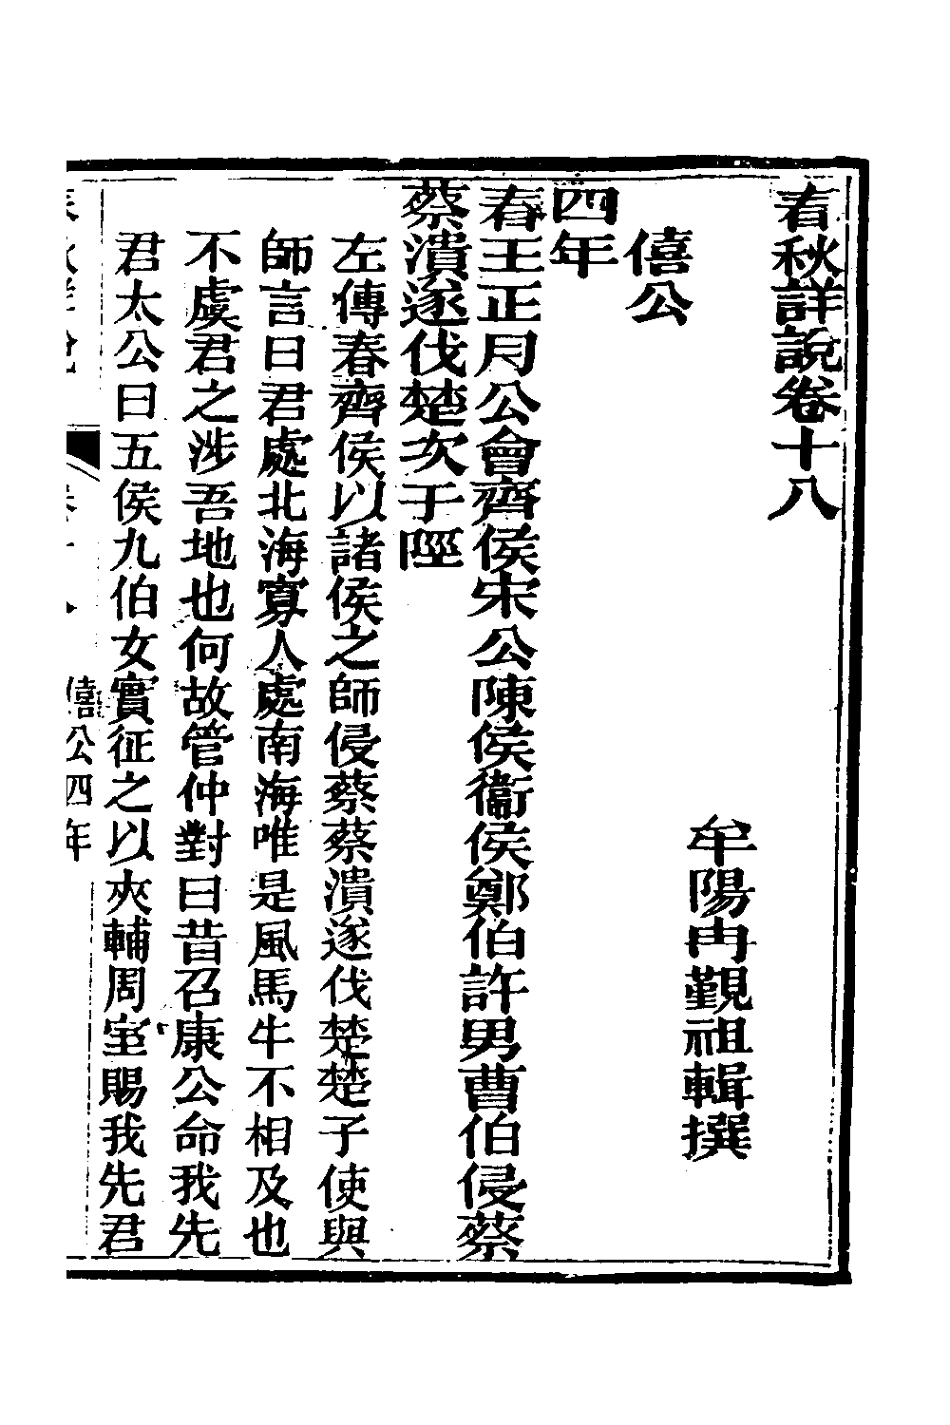 春秋詳說卷十八
牟陽冉覲祖輯撰
僖公
四年
春王正月公會齊侯宋公陳侯衞侯鄭伯許男曹伯侵蔡
蔡潰遂伐楚次于陘
左傳春齊侯以諸侯之師侵蔡蔡潰遂伐楚楚子使與
師言曰君處北海寡人處南海唯是風馬牛不相及也
不虞君之涉吾地也何故管仲對曰昔召康公命我先
君太公曰五侯九伯女實征之以夾輔周室賜我先君
僖公四年